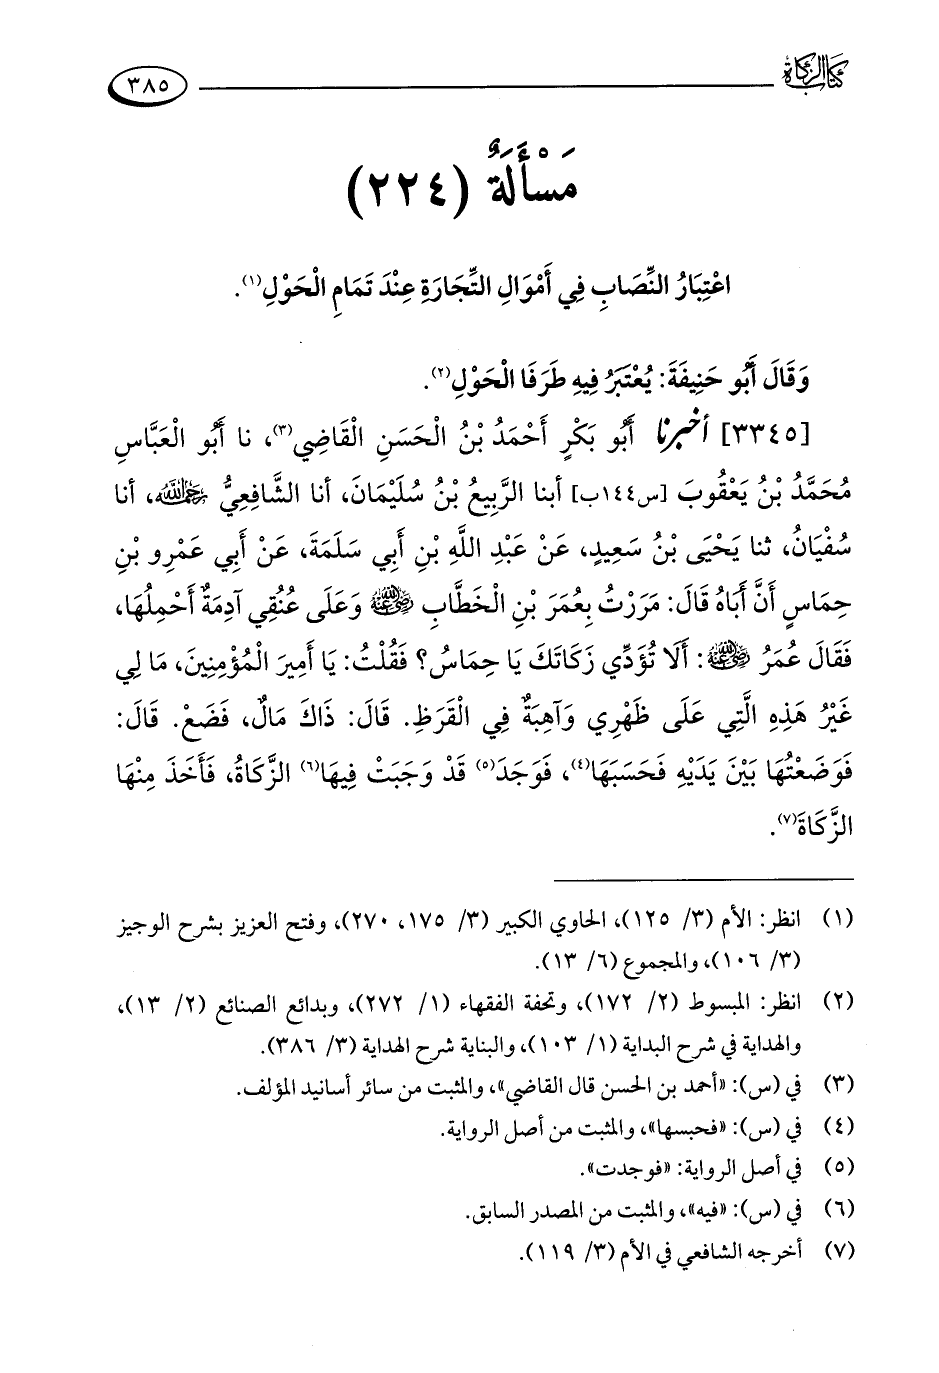 كتاب الزكاة
٣٨٥
مَسْأَلَةٌ (٢٢٤)
اعْتِبَارُ النِّصَابِ فِي أَمْوَالِ التِّجَارَةِ عِنْدَ تَمَامِ الْحَوْلِ(١).
وَقَالَ أَبُو حَنِيفَةَ: يُعْتَبَرُ فِيهِ طَرَفَا الْحَوْلِ(٢).
[٣٣٤٥] أخبرنا أَبُو بَكْرٍ أَحْمَدُ بْنُ الْحَسَنِ الْقَاضِي(٣)، نا أَبُو الْعَبَّاسِ
مُحَمَّدُ بْنُ يَعْقُوبَ [س١٤٤ب] أبنا الرَّبِيعُ بْنُ سُلَيْمَانَ، أنا الشَّافِعِيُّ رحمه الله، أنا
سُفْيَانُ، ثنا يَحْيَى بْنُ سَعِيدٍ، عَنْ عَبْدِ اللَّهِ بْنِ أَبِي سَلَمَةَ، عَنْ أَبِي عَمْرِو بْنِ
حِمَاسٍ أَنَّ أَبَاهُ قَالَ: مَرَرْتُ بِعُمَرَ بْنِ الْخَطَّابِ رضي الله عنه وَعَلَى عُنُقِي آدِمَةٌ أَحْمِلُهَا،
فَقَالَ عُمَرُ رضي الله عنه: أَلَا تُؤَدِّي زَكَاتَكَ يَا حِمَاسُ؟ فَقُلْتُ: يَا أَمِيرَ الْمُؤْمِنِينَ، مَا لِي
غَيْرُ هَذِهِ الَّتِي عَلَى ظَهْرِي وَآهِبَةٌ فِي الْقَرَظِ. قَالَ: ذَاكَ مَالٌ، فَضَعْ. قَالَ:
فَوَضَعْتُهَا بَيْنَ يَدَيْهِ فَحَسَبَهَا(٤)، فَوَجَدَ(٥) قَدْ وَجَبَتْ فِيهَا(٦) الزَّكَاةُ، فَأَخَذَ مِنْهَا
الزَّكَاةَ(٧).
(١) انظر: الأم (٣/ ١٢٥)، الحاوي الكبير (٣/ ١٧٥، ٢٧٠)، وفتح العزيز بشرح الوجيز
(٣/ ١٠٦)، والمجموع (٦/ ١٣).
(٢) انظر: المبسوط (٢/ ١٧٢)، وتحفة الفقهاء (١/ ٢٧٢)، وبدائع الصنائع (٢/ ١٣)،
والهداية في شرح البداية (١/ ١٠٣)، والبناية شرح الهداية (٣/ ٣٨٦).
(٣) في (س): «أحمد بن الحسن قال القاضي»، والمثبت من سائر أسانيد المؤلف.
(٤) في (س): «فحبسها»، والمثبت من أصل الرواية.
(٥) في أصل الرواية: «فوجدت».
(٦) في (س): «فيه»، والمثبت من المصدر السابق.
(٧) أخرجه الشافعي في الأم (٣/ ١١٩).